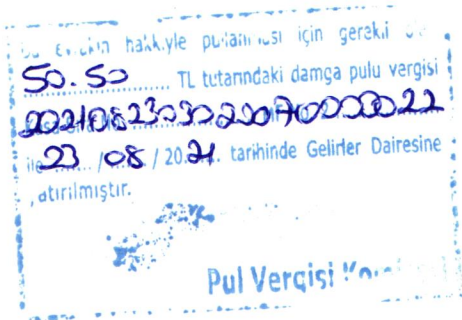 bu evrakın hakkıyle pullanması için gerekli
50.50 TL tutarındaki damga pulu vergisi
23 / 08 / 2021. tarihinde Gelirler Dairesine
yatırılmıştır.
Pul Vergisi